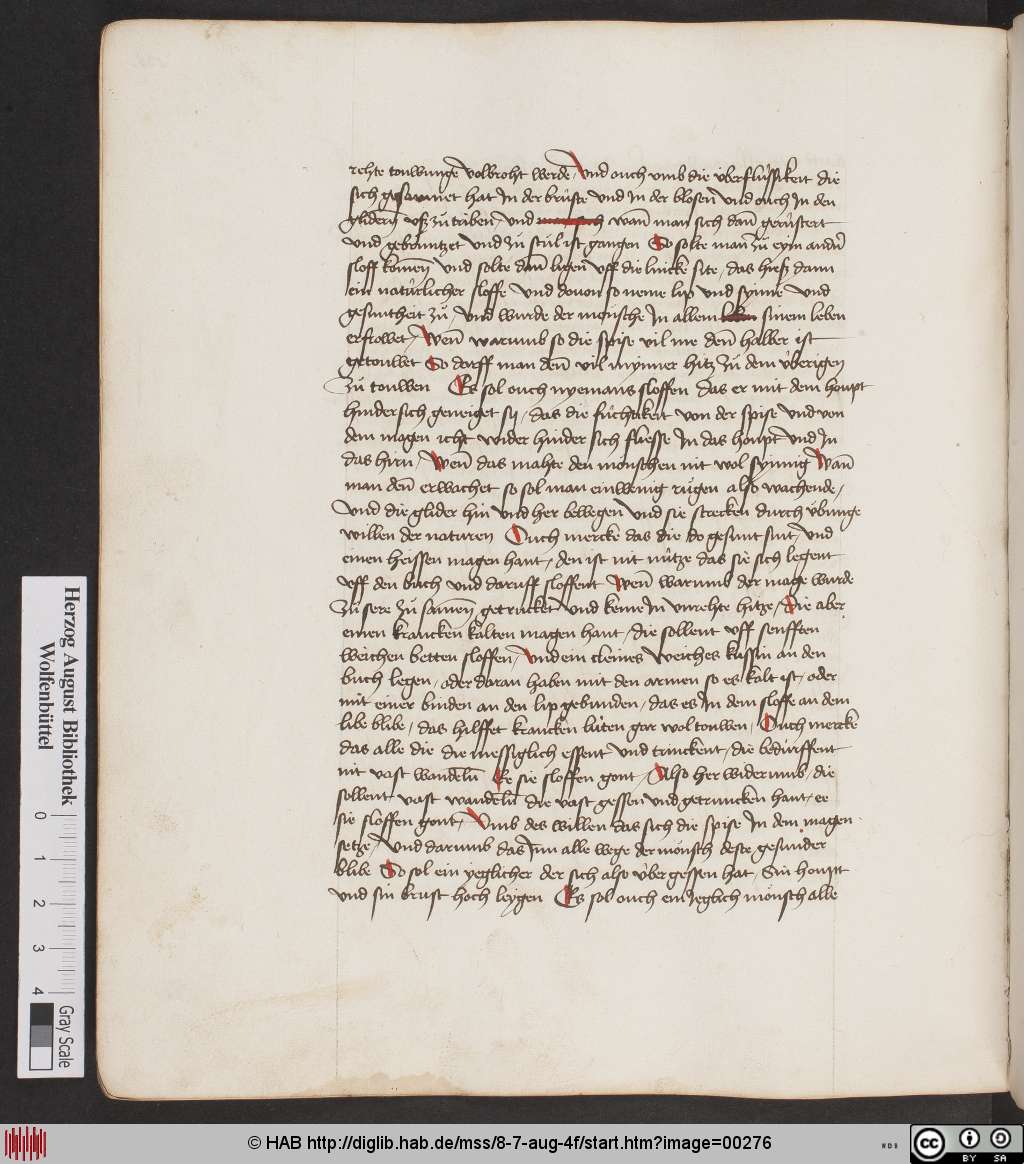 rehte touwunge volbroht werde / Und ouch umb die überflüssikeit die
sich gesamnet hat In der brüste und In der blosen und ouch In den
glidern usz zu triben / und wann man sich dann gerüstert
und gebrantzet und zu stůl ist gangen So solte man zu eym andern
sloff komen und solte dann ligen uff die lincke site / das hiesz dann
ein natürlicher sloffe und dovon so neme lip und synne und
gesuntheit zů / und wurde der mensche In allem sinem leben
erfrowet / Wenn warumb so die spise vil me denn halber ist
getouwet So darff man denn vil mynner hitz zu dem überigen
zu touwen Es sol ouch nyemans sloffen das er mit dem houpt
hindersich geneiget sy / das die fůchtikeit von der spise und von
dem magen icht wider hinder sich fliesse In das houpt und In
das hirn / Wenn das mahte den menschen nit wol synnig Wann
man denn erwachet so sol man ein wenig růgen also wachende /
und die glider hin und her bewegen und sie strecken durch übunge
willen der naturen Ouch mercke das die do gesunt sint / und
einen heissen magen hant / den ist nit nütze das sie sich legent
uff den buch und daruff sloffent Wenn warumb der mage wurde
zu sere zu samen getrucket und keme In unrehte hitze / Die aber
einen krancken kalten magen hant / die sollent uff senfften
weichen betten sloffen / und ein cleines weiches kussin an den
buch legen / oder daran haben mit den armen so es kalt ist / oder
mit einer binden an den lip gebunden / das es In dem sloffe an dem
libe blibe / das hilffet krancken lüten gar wol touwen / Ouch mercke
das alle die die messiglich essent und trinckent / die bedürffent
nit vast wandeln Ee sie sloffen gont / Also her widerumb die
sollent vast wandeln die vast gessen und getruncken hant / ee
sie sloffen gont / Umb des willen das sich die spise In dem magen
setze / und darumb das Im alle wege der mönsch deste gesunder
blibe So sol ein yeglicher der sich also übergessen hat / Sin houpt
und sin brust hoch leygen Es sol ouch ein Jeglich mönsch alle
Herzog August Bibliothek
Wolfenbüttel
0 1 2 3 4
Gray Scale
© HAB http://diglib.hab.de/mss/8-7-aug-4f/start.htm?image=00276
WDB
cc BY SA